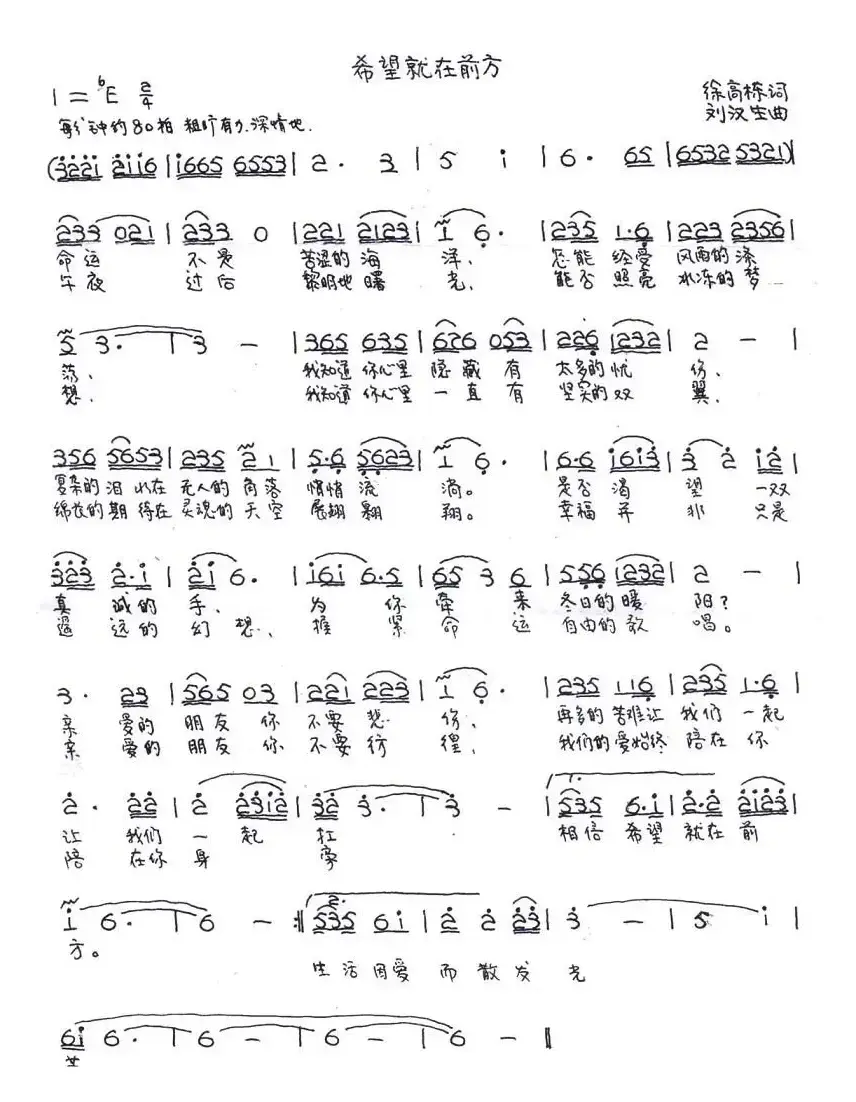 希望就在前方
1=♭E 2/4
徐高栋词
每分钟约80拍 粗旷有力、深情地.
刘汉生曲
(3221 2116 | 1665 6553 | 2· 3 | 5 i | 6· 65 | 6532 5321) |
233 021 | 233 0 | 221 2123 | 1 6· | 235 1·6 | 223 2356 |
命运 不是 苦涩的海 洋、 怎能 经受 风雨的涤
午夜 过后 黎明地曙 光、 能否 照亮 冰冻的梦
5 3· | 3 - | 365 635 | 676 053 | 226 1232 | 2 - |
荡、 我知道你心里 隐藏有 太多的忧 伤、
想、 我知道你心里 一直有 坚实的双 翼、
356 5653 | 235 21 | 5·6 5623 | 1 6· | 6·6 i6i3 | 3 2 i2 |
复杂的泪水在 无人的角落 悄悄流 淌。 是否渴 望 一双
绵长的期待在 灵魂的天空 展翅翱 翔。 幸福并 非 只是
323 2·i | 2i 6· | i6i 6·5 | 65 3 6 | 556 1232 | 2 - |
真 诚的 手、 为 你 牵 来 冬日的暖 阳?
遥 远的 幻 想、 握 紧 命 运 自由的歌 唱。
3· 23 | 565 03 | 221 223 | 1 6· | 235 116 | 235 1·6 |
亲 爱的 朋友 你 不要悲 伤、 再多的苦难让 我们 一起
亲 爱的 朋友 你 不要彷 徨、 我们的爱始终 陪在 你
2· 22 | 2 23i2 | 32 3· | 3 - | 535 6·i | 2·2 2i23 |
让 我们 一 起 扛 相信 希望 就在前
陪 在你 身 旁
i 6· | 6 - :| 535 6i | 2 2 23 | 3 - | 5 i |
方。
生活因爱 而散发 光
6i 6· | 6 - | 6 - | 6 - ‖
芒